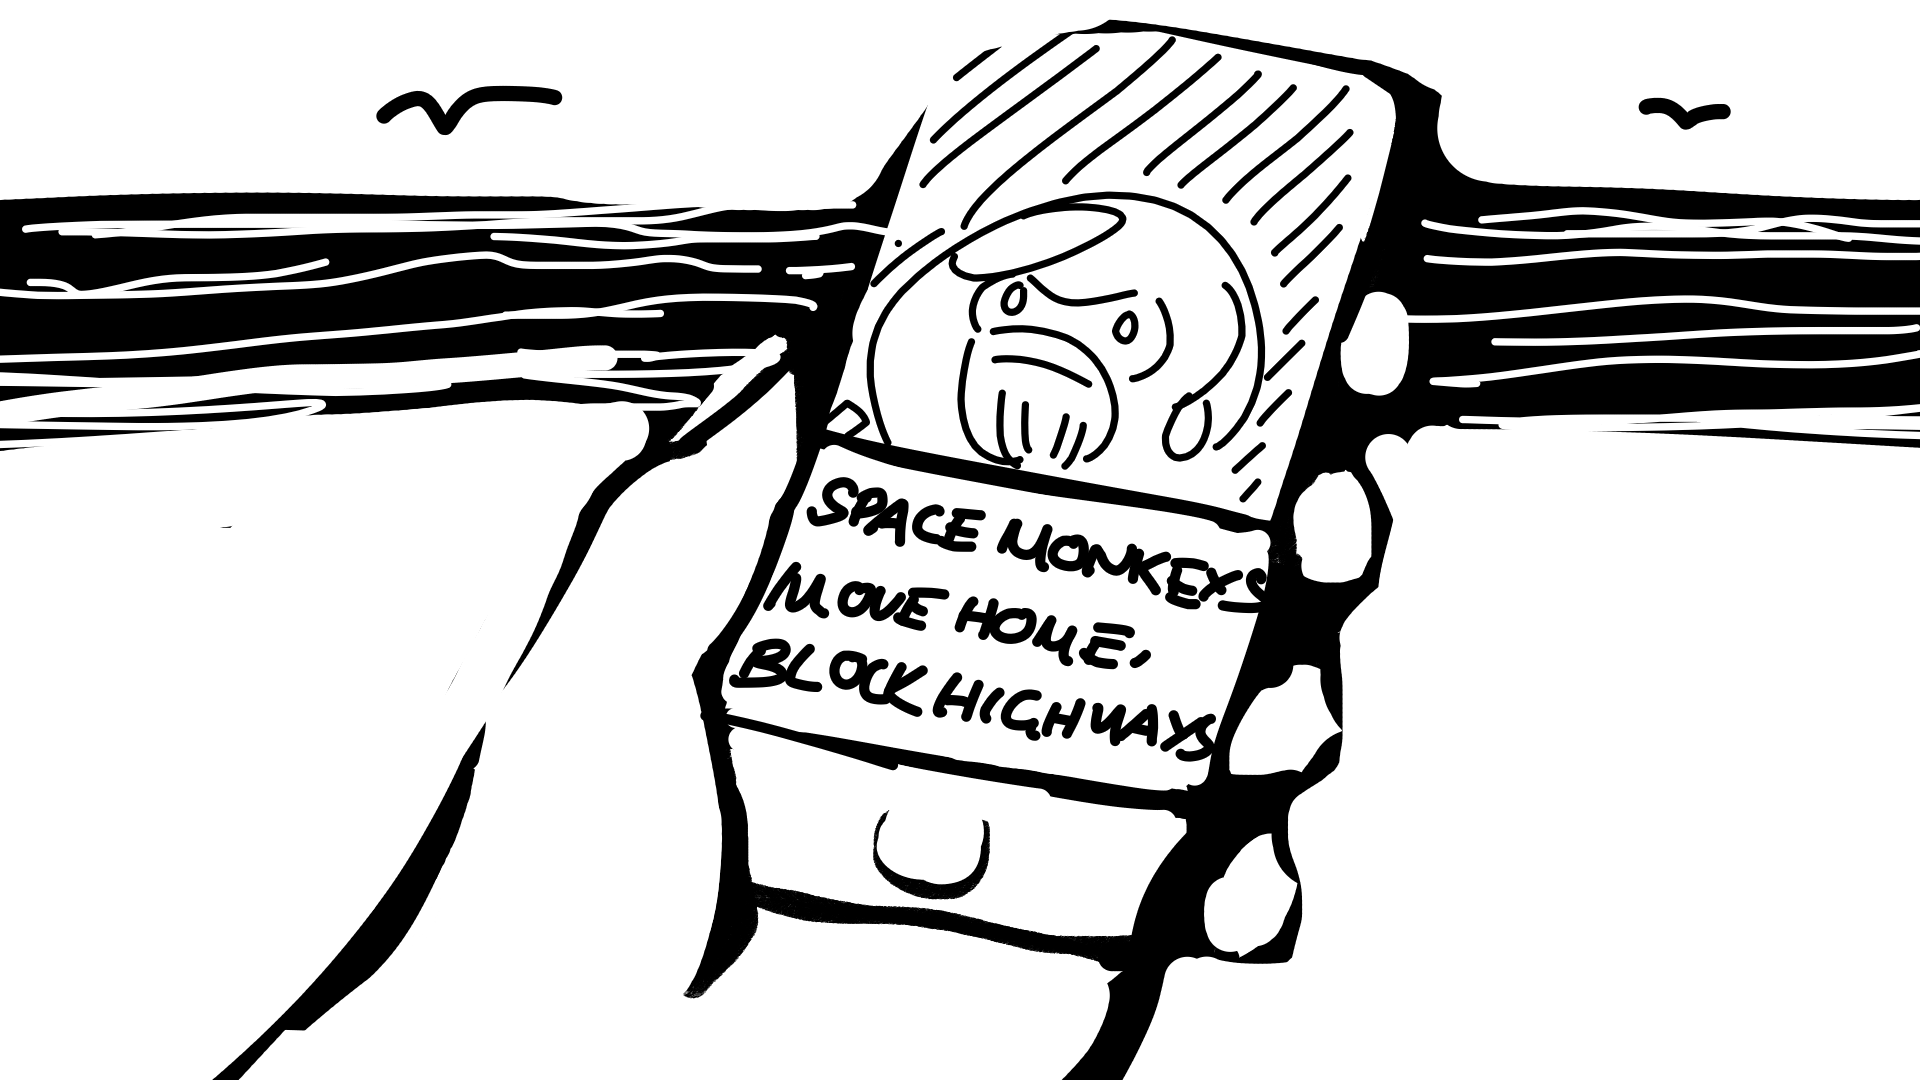 SPACE MONKEYS
MOVE HOME,
BLOCK HIGHWAYS